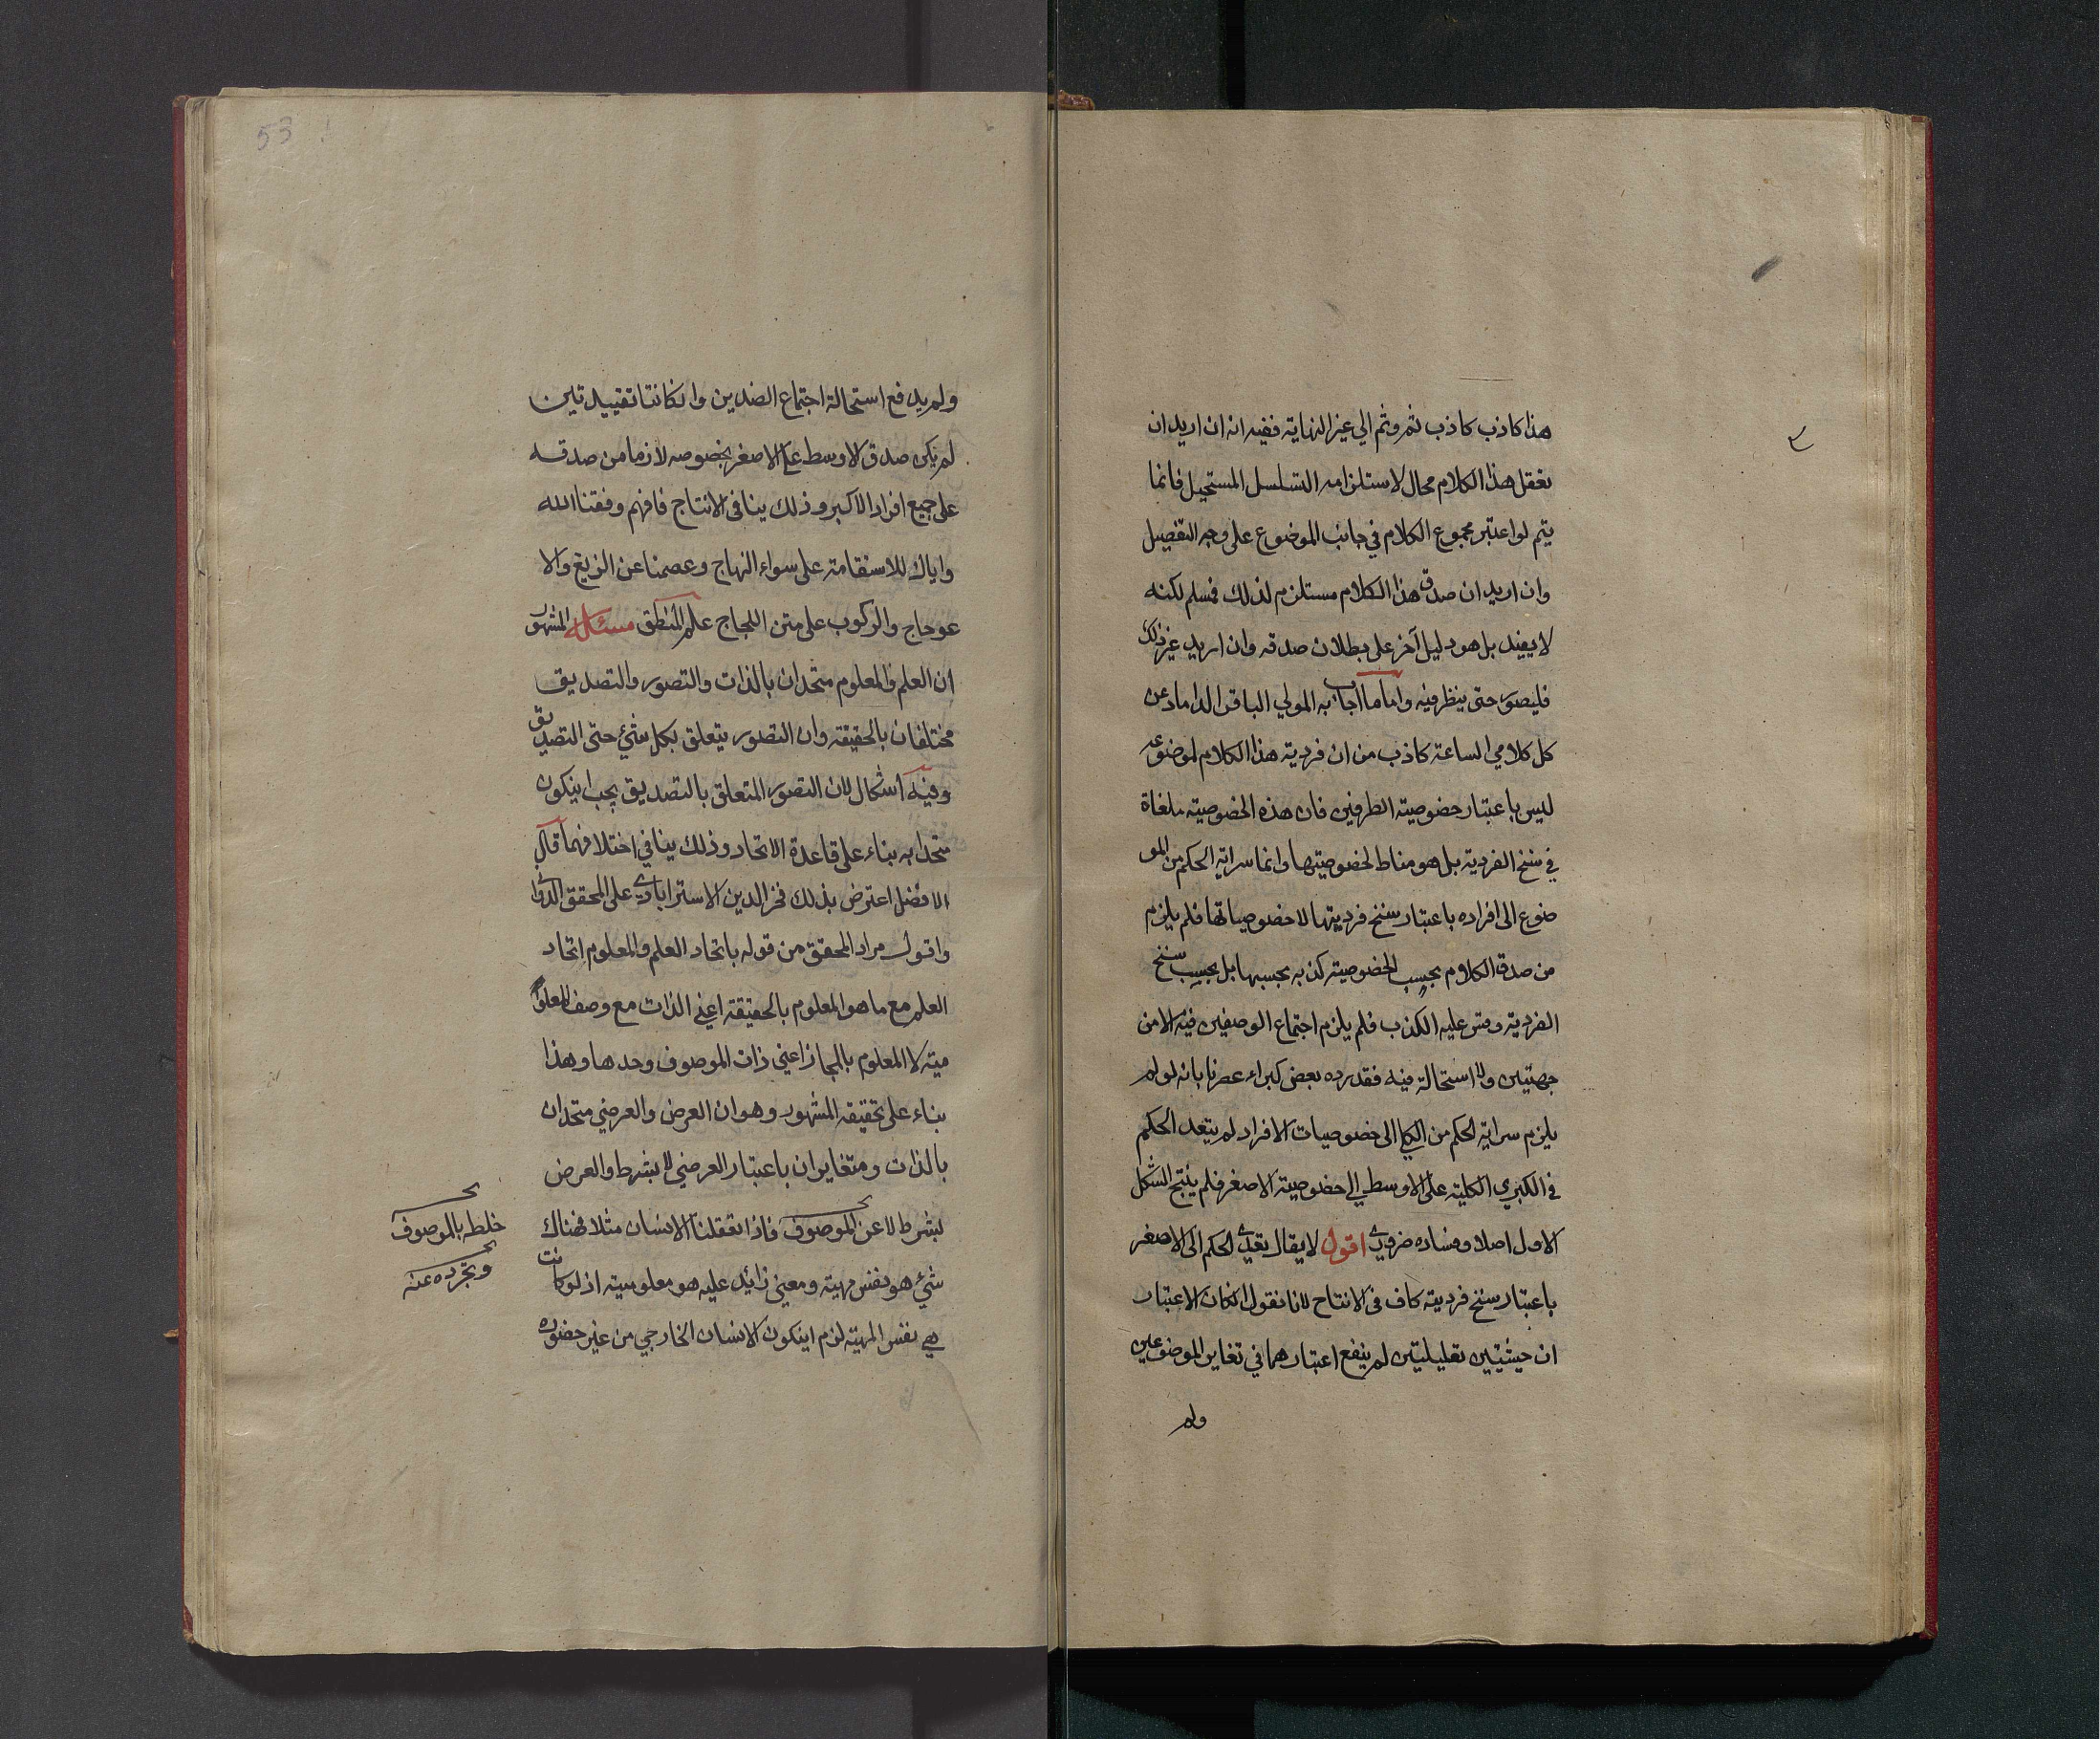 هذا كاذب كاذب ثم وثم الي غير النهاية ففيه انه ان اريد ان
تعقل هذا الكلام محال لاستلزامه التسلسل المستحيل فانما
يتم لو اعتبر مجموع الكلام في جانب الموضوع على وجه التفصيل
وان اريد ان صدق هذا الكلام مستلزم لذلك فمسلم لكنه
لا يفيد بل هو دليل آخر على بطلان صدقه وان اريد غير ذلك
فليصور حتى ينظر فيه واما ما اجاب به المولي الباقر الداماد عن
كل كلامي الساعة كاذب من ان فردية هذا الكلام لموضوعه
ليس باعتبار خصوصية الطرفين فان هذه الخصوصية ملغاة
في سنخ الفردية بل هو مناط لخصوصيتها وانما سراية الحكم من المو
ضوع الى افراده باعتبار سنخ فرديتها لا خصوصياتها فلم يلزم
من صدق الكلام بحسب الخصوصية كذبه بحسبها بل بحسب سنخ
الفردية وقس عليه الكذب فلم يلزم اجتماع الوصفين فيه الا من
جهتين ولا استحالة فيه فقد رده بعض كبراء عصرنا بانه لو لم
يلزم سراية الحكم من الكلي الى خصوصيات الافراد لم يتعد الحكم
في الكبري الكلية على الاوسط الي خصوصية الاصغر فلم ينتج الشكل
الاول اصلا وفساده ضروري اقول لا يقال تعدي الحكم الى الاصغر
باعتبار سنخ فردية كاف في الانتاج لانا نقول ان كان الاعتبار
ان حيثيتين تعليليتين لم ينفع اعتبارهما في تغاير الموضوعين
ولم
53
ولم يدفع استحالة اجتماع الضدين وان كانتا تقييديتين
لم يكن صدق الاوسط على الاصغر بخصوصه لازما من صدقه
على جميع افراد الاكبر وذلك ينافى الانتاج فافهم وفقنا الله
واياك للاستقامة على سواء النهاج وعصمنا عن الزيغ والا
عوجاج والركوب على متن اللجاج علم المنطق مسئله المشهور
ان العلم والمعلوم متحدان بالذات والتصور والتصديق
مختلفان بالحقيقة وان التصور يتعلق بكل شئ حتى التصديق
وفيه اشكال لان التصور المتعلق بالتصديق يجب ان يكون
متحدا به بناء على قاعدة الاتحاد وذلك ينافي اختلافهما قال
الافضل اعترض بذلك فخر الدين الاسترابادي على المحقق الدواني
واقول مراد المحقق من قوله باتحاد العلم والمعلوم اتحاد
العلم مع ما هو المعلوم بالحقيقة اعني الذات مع وصف المعلو
مية لا المعلوم بالمجاز اعني ذات الموصوف وحدها وهذا
بناء على تحقيقه المشهور وهو ان العرض والعرضي متحدان
بالذات ومتغايران باعتبار العرضي لا بشرط والعرض
بشرط لا عن الموصوف فاذا تعقلنا الانسان مثلا فهناك
شئ هو نفس مهية ومعنى زائد عليه هو معلومية اذ لو كانت
هي نفس المهية لزم ان يكون الانسان الخارجي من غير حضوره
خلطه بالموصوف
وتجرده عنه